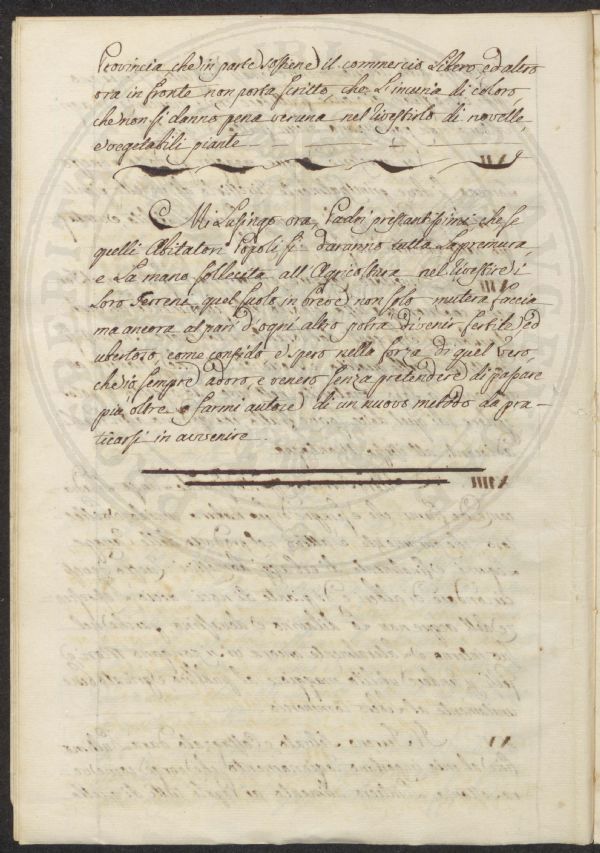 Provincia che in parte sostiene il commercio Libero, ed altro
ora in fronte non porta scritto, che L'incuria di coloro
che non si danno pena veruna nel rivestirlo di novelle,
e vegetabili piante
Mi Lusingo ora, Padri prestantissimi che se
quelli Abitatori Popoli si daranno tutta La premura
e La mano sollecita all'Agricoltura nel rivestire i
Loro Terreni, quel suolo in breve non solo muterà faccia
ma ancora al pari d'ogni altro potrà divenir fertile, ed
ubertoso, come confido e spero nella forza di quel vero,
che io sempre adoro, e venero senza pretendere di passare
più oltre e farmi autore di un nuovo metodo da pra-
ticarsi in avvenire